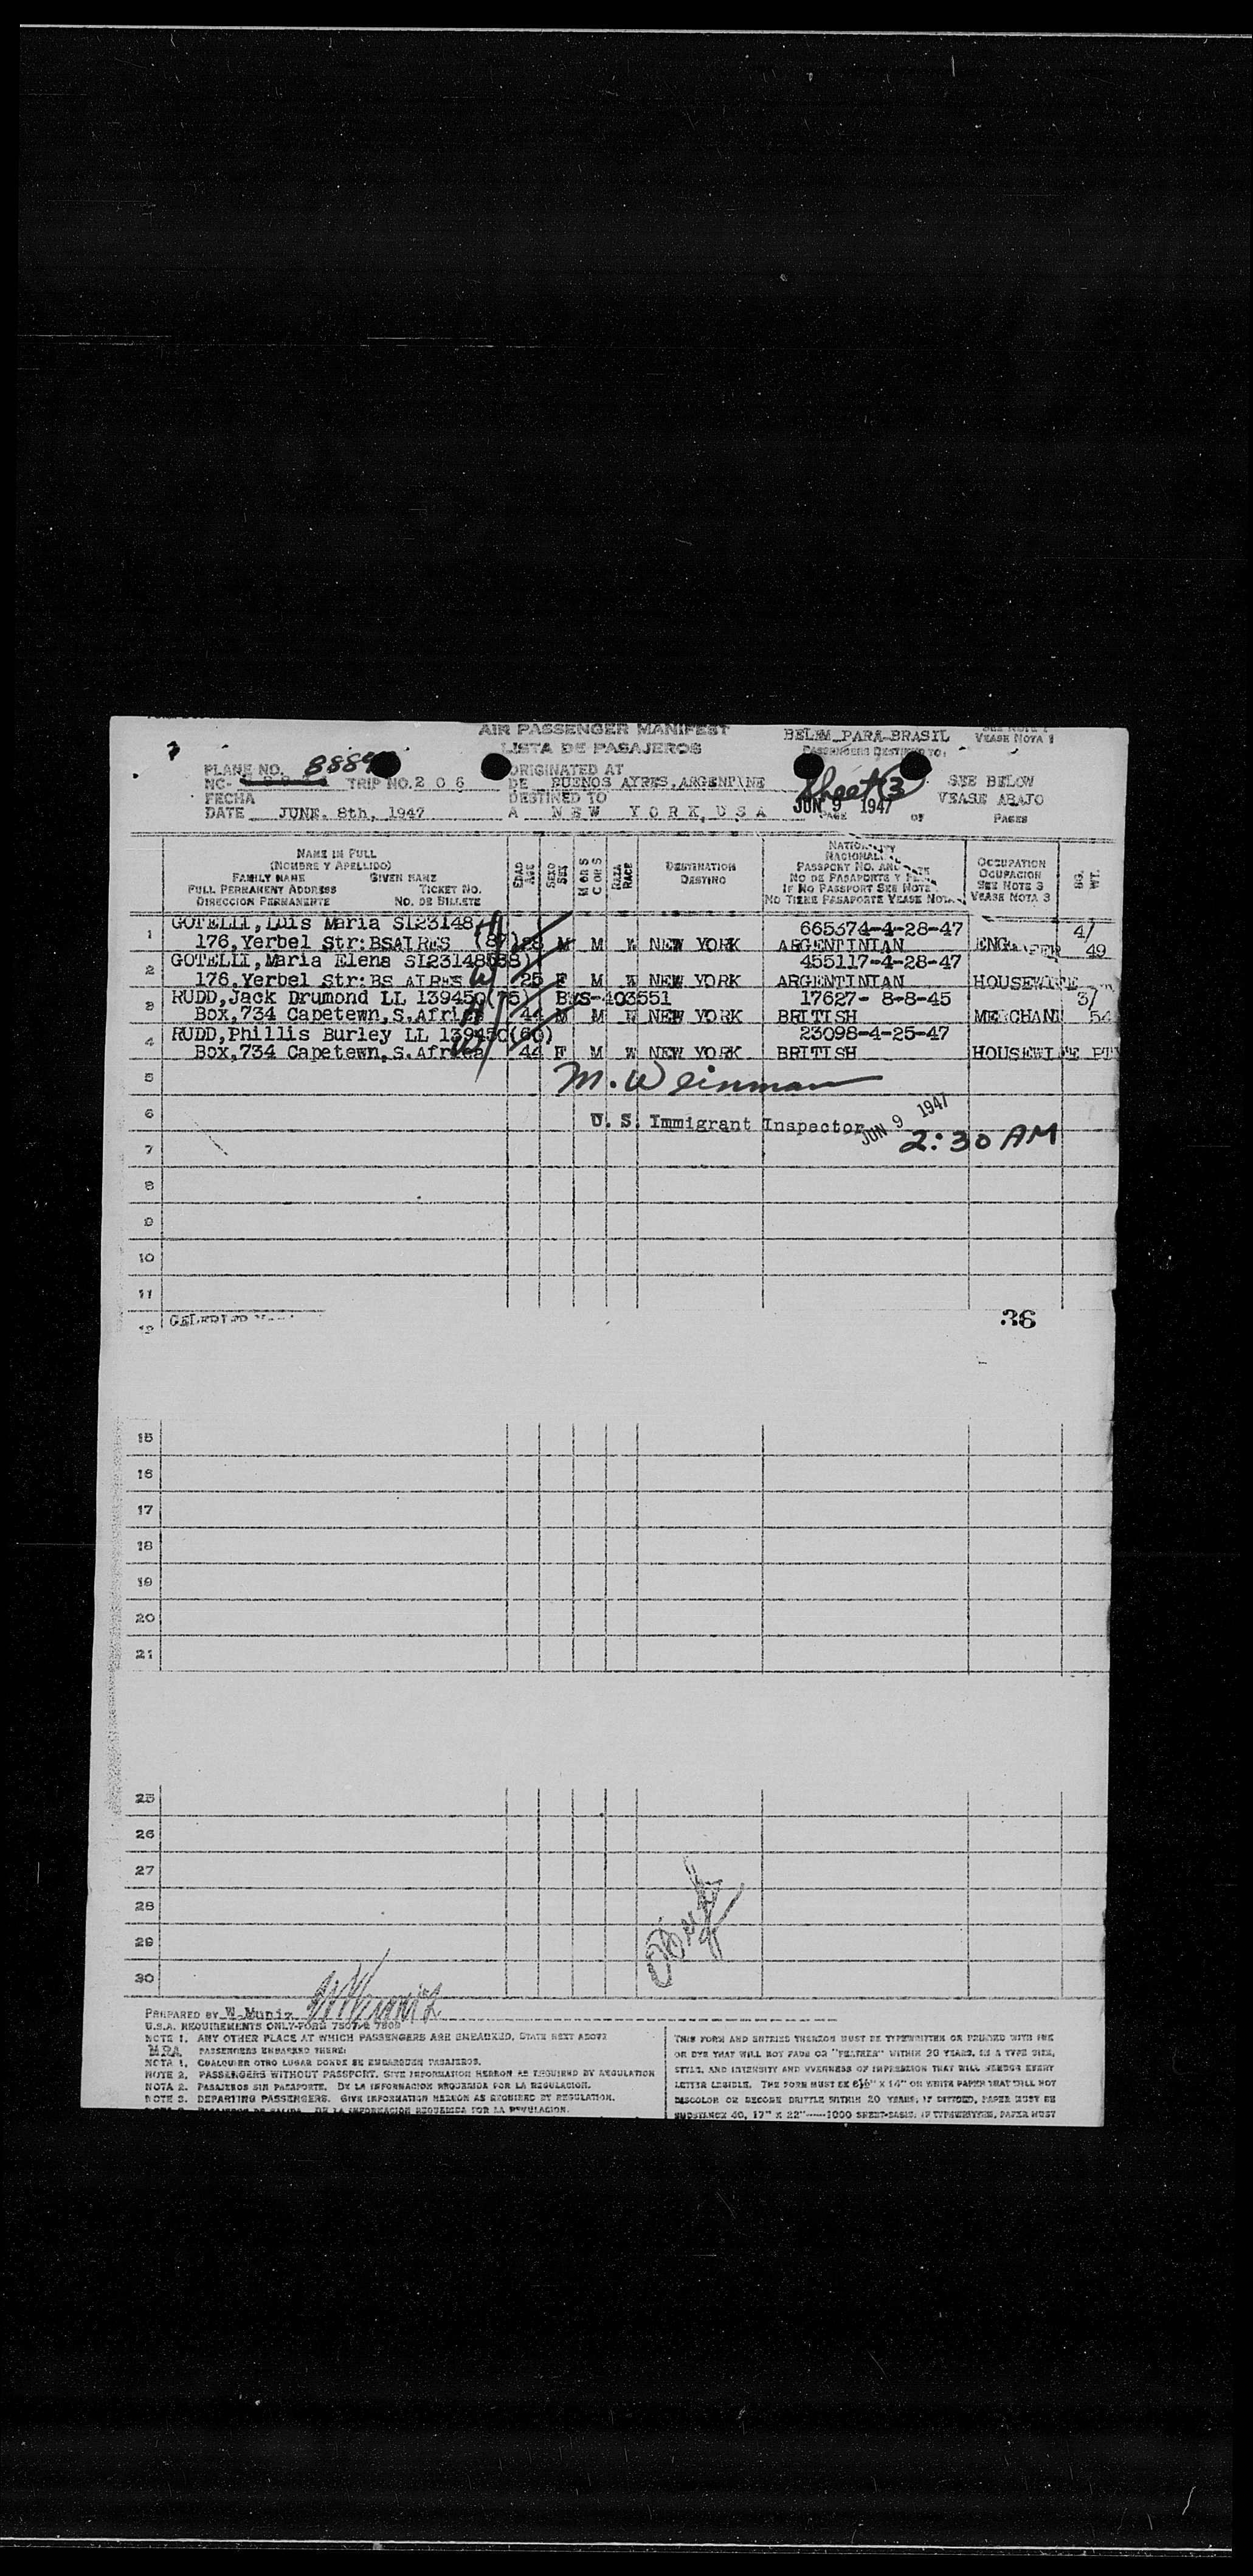 AIR PASSENGER MANIFEST
LISTA DE PASAJEROS
BELEM PARA-BRASIL
PASSENGERS DESTINED TO:
VEASE NOTA 1
PLANE NO. 8889
NC- TRIP NO. 2 0 6
ORIGINATED AT
DE BUENOS AYRES, ARGENTINE
Sheet (3)
SEE BELOW
VEASE ABAJO
FECHA
DATE JUNE. 8th, 1947
DESTINED TO
A N E W Y O R K, U S A
JUN 9 1947
PAGE OF PAGES
NAME IN FULL
(NOMBRE Y APELLIDO)
FAMILY NAME GIVEN NAME
FULL PERMANENT ADDRESS TICKET NO.
DIRECCION PERMANENTE NO. DE BILLETE
EDAD AGE
SEXO SEX
M OR S C OR S
RAZA RACE
DESTINATION
DESTINO
PASSPORT NO. AND
NO DE PASAPORTE Y
IF NO PASSPORT SEE NOTE
NO TIENE PASAPORTE VEASE NOTA
OCCUPATION
OCUPACION
SEE NOTE 3
VEASE NOTA 3
WT.
1 GOTELLI, Luis Maria S123148 665374-4-28-47 4/
176, Yerbel Str: BSAIRES (87) 28 M M W NEW YORK ARGENTINIAN 49
2 GOTELLI, Maria Elena S123148 455117-4-28-47
176, Yerbel Str: BS AIRES 25 F M W NEW YORK ARGENTINIAN HOUSEWIFE
3 RUDD, Jack Drumond LL 139450(75) 403551 17627- 8-8-45 3/
Box, 734 Capetewn, S. Africa 44 M M W NEW YORK BRITISH MERCHANT 54
4 RUDD, Phillis Burley LL 139450(60) 23098-4-25-47
Box, 734 Capetewn, S. Africa 44 F M W NEW YORK BRITISH HOUSEWIFE
5 M. Weinman
6 U. S. Immigrant Inspector JUN 9 1947
7 2:30 AM
8
9
10
11
12 36
15
16
17
18
19
20
21
25
26
27
28
29
30
PREPARED BY W. Muniz W Muniz
U.S.A. REQUIREMENTS ONLY-FORM 7507 & 7508
NOTE 1. ANY OTHER PLACE AT WHICH PASSENGERS ARE EMBARKED, STATE NEXT ABOVE
PASSENGERS EMBARKED THERE:
NOTA 1. CUALQUIER OTRO LUGAR DONDE SE EMBARQUEN PASAJEROS.
NOTE 2. PASSENGERS WITHOUT PASSPORT. GIVE INFORMATION HEREON AS REQUIRED BY REGULATION
NOTA 2. PASAJEROS SIN PASAPORTE. DE LA INFORMACION REQUERIDA POR LA REGULACION.
NOTE 3. DEPARTING PASSENGERS. GIVE INFORMATION HEREON AS REQUIRED BY REGULATION.
DE LA INFORMACION REQUERIDA POR LA REGULACION.
THIS FORM AND ENTRIES THEREON MUST BE TYPEWRITTEN OR PRINTED WITH INK
OR DYE THAT WILL NOT FADE OR "FEATHER" WITHIN 20 YEARS, IN A TYPE SIZE,
STYLE, AND INTENSITY AND EVENNESS OF IMPRESSION THAT WILL RENDER EVERY
LETTER LEGIBLE. THE FORM MUST BE 8½" X 14" ON WHITE PAPER THAT WILL NOT
DISCOLOR OR BECOME BRITTLE WITHIN 20 YEARS, IF DITTOED, PAPER MUST BE
SUBSTANCE 40, 17" X 22"—1000 SHEET-BASIS. IF TYPEWRITTEN, PAPER MUST